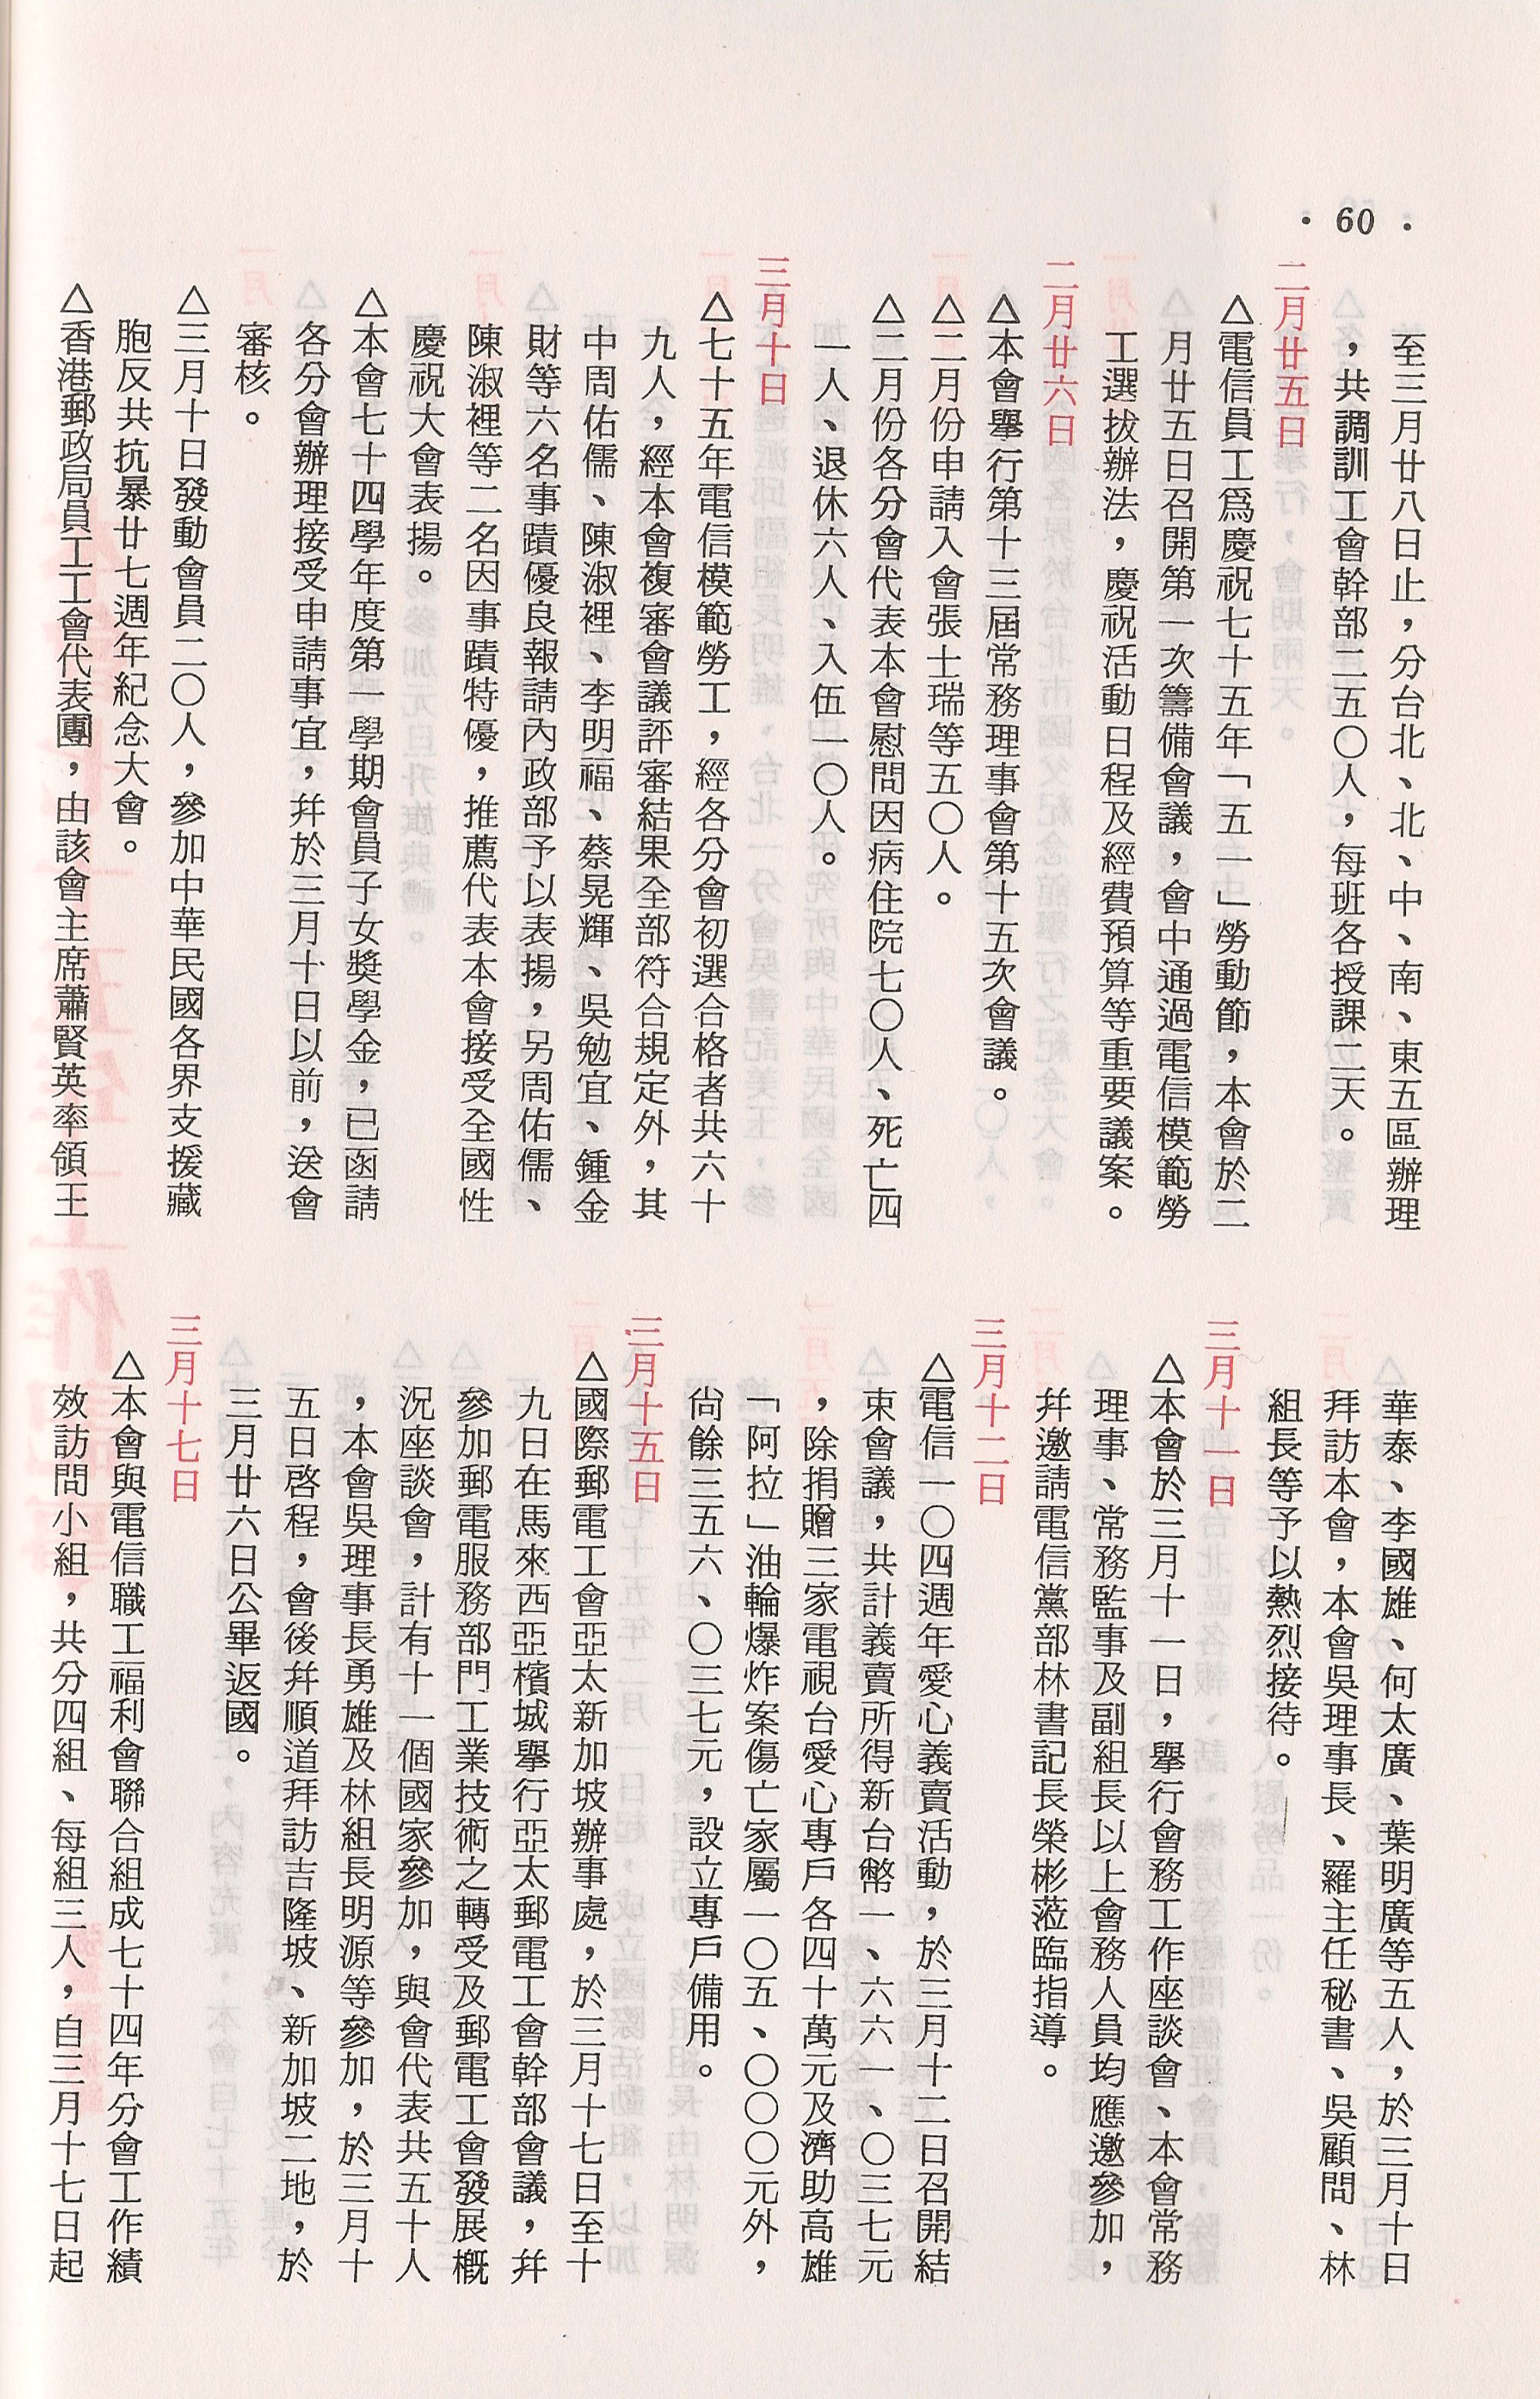 • 60 •
至三月廿八日止，分台北、北、中、南、東五區辦理
，共調訓工會幹部二五〇人，每班各授課二天。
二月廿五日
△電信員工爲慶祝七十五年「五一」勞動節，本會於二
月廿五日召開第一次籌備會議，會中通過電信模範勞
工選拔辦法，慶祝活動日程及經費預算等重要議案。
二月廿六日
△本會舉行第十三屆常務理事會第十五次會議。
△二月份申請入會張士瑞等五〇人。
△二月份各分會代表本會慰問因病住院七〇人、死亡四
一人、退休六人、入伍一〇人。
三月十日
△七十五年電信模範勞工，經各分會初選合格者共六十
九人，經本會複審會議評審結果全部符合規定外，其
中周佑儒、陳淑裡、李明福、蔡晃輝、吳勉宜、鍾金
財等六名事蹟優良報請內政部予以表揚，另周佑儒、
陳淑裡等二名因事蹟特優，推薦代表本會接受全國性
慶祝大會表揚。
△本會七十四學年度第一學期會員子女獎學金，已函請
各分會辦理接受申請事宜，幷於三月十日以前，送會
審核。
△三月十日發動會員二〇人，參加中華民國各界支援藏
胞反共抗暴廿七週年紀念大會。
△香港郵政局員工工會代表團，由該會主席蕭賢英率領王
華泰、李國雄、何太廣、葉明廣等五人，於三月十日
拜訪本會，本會吳理事長、羅主任秘書、吳顧問、林
組長等予以熱烈接待。
三月十一日
△本會於三月十一日，舉行會務工作座談會、本會常務
理事、常務監事及副組長以上會務人員均應邀參加，
幷邀請電信黨部林書記長榮彬蒞臨指導。
三月十二日
△電信一〇四週年愛心義賣活動，於三月十二日召開結
束會議，共計義賣所得新台幣一、六六一、〇三七元
，除捐贈三家電視台愛心專戶各四十萬元及濟助高雄
「阿拉」油輪爆炸案傷亡家屬一〇五、〇〇〇元外，
尙餘三五六、〇三七元，設立專戶備用。
三月十五日
△國際郵電工會亞太新加坡辦事處，於三月十七日至十
九日在馬來西亞檳城舉行亞太郵電工會幹部會議，幷
參加郵電服務部門工業技術之轉受及郵電工會發展概
況座談會，計有十一個國家參加，與會代表共五十人
，本會吳理事長勇雄及林組長明源等參加，於三月十
五日啓程，會後幷順道拜訪吉隆坡、新加坡二地，於
三月廿六日公畢返國。
三月十七日
△本會與電信職工福利會聯合組成七十四年分會工作績
效訪問小組，共分四組、每組三人，自三月十七日起